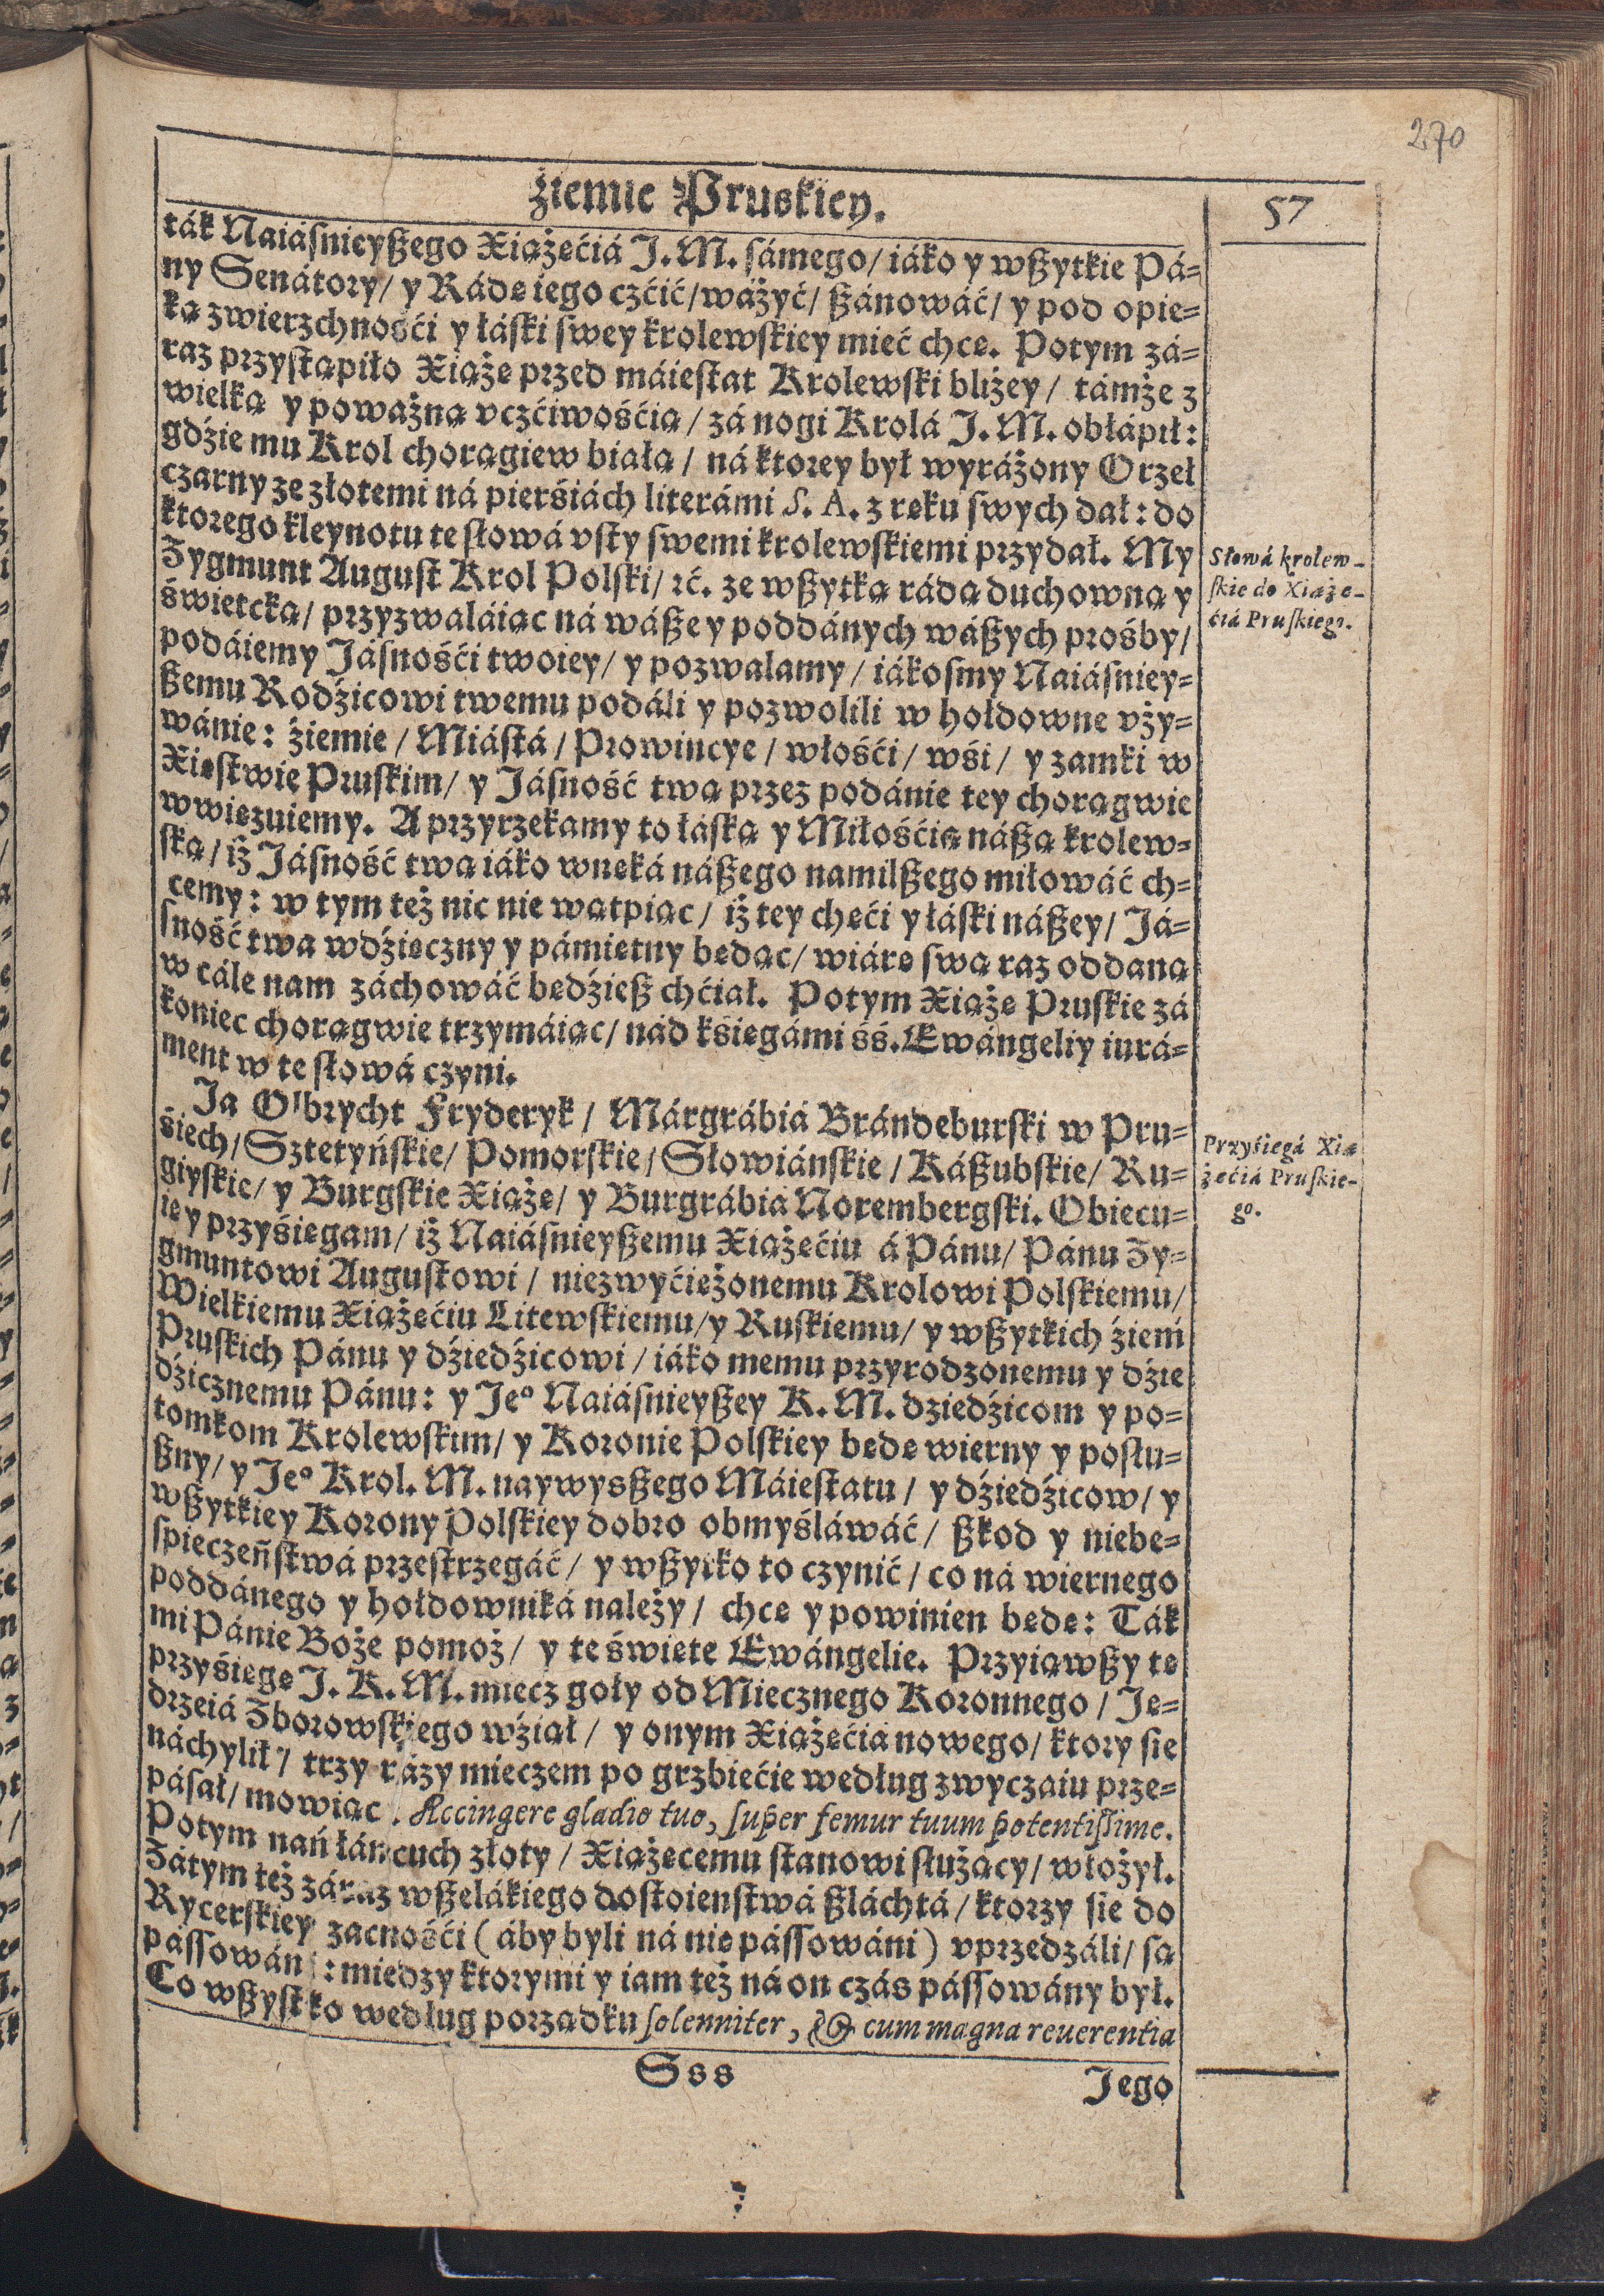 270
źiemie Pruskiey.
57
ták Naiásnieyßego Xiążęćiá J. M. sámego/ iáko y wßytkie Pá-
ny Senátory/ y Rádę iego czćić/ wáżyć/ ßánowáć/ y pod opie-
ką zwierzchnośći y łáski swey krolewskiey mieć chce. Potym zá-
raz przystąpiło Xiążę przed máiestat Krolewski bliżey/ támże z
wielką y poważną vczćiwośćią/ zá nogi Krolá J. M. obłápił:
gdźie mu Krol chorągiew białą/ ná ktorey był wyráżony Orzeł
czarny ze złotemi ná pierśiách literámi S. A. z ręku swych dał: do
ktorego kleynotu te słowá vsty swemi krolewskiemi przydał. My
Zygmunt August Krol Polski/ ⁊ć. ze wßytką rádą duchowną y
świetcką/ przyzwaláiąc ná wáße y poddánych wáßych prośby/
podáiemy Jásnośći twoiey/ y pozwalamy/ iákosmy Naiásniey-
ßemu Rodźicowi twemu podáli y pozwolili w hołdowne vży-
wánie: źiemie/ Miástá/ Prowincye/ włośći/ wśi/ y zamki w
Xięstwie Pruskim/ y Jásność twą przez podánie tey chorągwie
wwięzuiemy. A przyrzekamy to łáską y Miłośćią náßą krolew-
ską/ iż Jásność twą iáko wnęká náßego namilßego miłowáć ch-
cemy: w tym też nic nie wątpiąc/ iż tey chęći y łáski náßey/ Já-
sność twa wdźięczny y pámiętny będąc/ wiárę swą raz oddáną
w cále nam záchowáć będźieß chćiał. Potym Xiążę Pruskie zá
koniec chorągwie trzymáiąc/ nád kśięgámi śś. Ewángeliy iurá-
ment w te słowá czyni.
Ja Olbrycht Fryderyk/ Márgrábiá Brándeburski w Pru-
śiech/ Sztetyńskie/ Pomorskie/ Słowiánskie/ Káßubskie/ Ru-
giyskie/ y Burgskie Xiążę/ y Burgrábia Norembergski. Obiecu-
ię y przyśięgam/ iż Naiásnieyßemu Xiążęćiu á Pánu/ Pánu Zy-
gmuntowi Augustowi/ niezwyćiężonemu Krolowi Polskiemu/
Wielkiemu Xiążęćiu Litewskiemu/ y Ruskiemu/ y wßytkich źiem
Pruskich Pánu y dźiedźicowi/ iáko memu przyrodzonemu y dźie
dźicznemu Pánu: y Jeº Naiásnieyßey K. M. dziedźicom y po-
tomkom Krolewskim/ y Koronie Polskiey będę wierny y posłu-
ßny/ y Jeº Krol. M. naywyßßego Máiestatu/ y dźiedźicow/ y
wßytkiey Korony Polskiey dobro obmyśláwáć/ ßkod y niebe-
śpieczeństwá przestrzegáć/ y wßytko to czynić/ co ná wiernego
poddánego y hołdowniká należy/ chcę y powinien będę: Ták
mi Pánie Boże pomoż/ y te święte Ewángelie. Przyiąwßy tę
przyśięgę J. K. M. miecz goły od Miecznego Koronnego/ Ję-
drzeiá Zborowskiego wźiął/ y onym Xiążęćiá nowego/ ktory się
náchylił/ trzy rázy mieczem po grzbiećie według zwyczaiu prze-
pásał/ mowiąc. Accingere gladio tuo, super femur tuum potentissime.
Potym nań łáncuch złoty/ Xiążęcemu stanowi służący/ włożył.
Zátym też záraz wßelákiego dostoieństwá ßláchtá/ ktorzy się do
Rycerskiey zacnośći (áby byli ná nię pássowáni) vprzedzáli/ są
pássowáni: między ktorymi y iam też ná on czás pássowány był.
Co wßystko według porządku solenniter, & cum magna reuerentia
Sss
Jego
Słowá krolew-
skie do Xiążę-
ćiá Pruskiego.
Przyśięgá Xią
żęćiá Pruskie-
go.